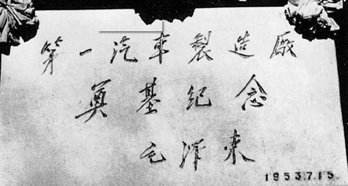 第一汽車製造厰
奠基紀念
毛澤東
1953.7.15.